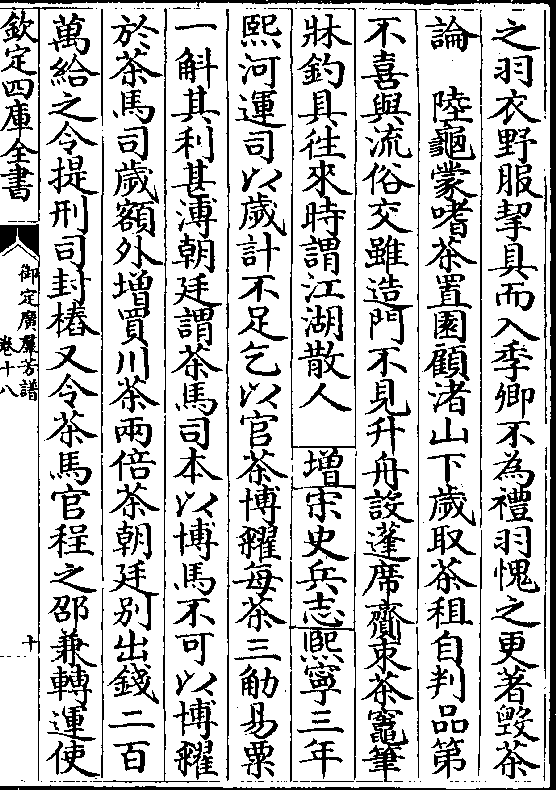 之羽衣野服挈具而入季卿不為禮羽愧之更著毀茶
論　陸龜蒙嗜茶置園顧渚山下歲取茶租自判品第
不喜與流俗交雖造門不見升舟設蓬席齎束茶竈筆
牀釣具徃來時謂江湖散人　增宋史兵志熙寧三年
熙河運司以歲計不足乞以官茶博糴每茶三觔易粟
一斛其利甚溥朝廷謂茶馬司本以博馬不可以博糴
於茶馬司歲額外增買川茶兩倍茶朝廷別出錢二百
萬給之令提刑司封樁又令茶馬官程之邵兼轉運使
欽定四庫全書
御定廣羣芳譜
卷十八
十